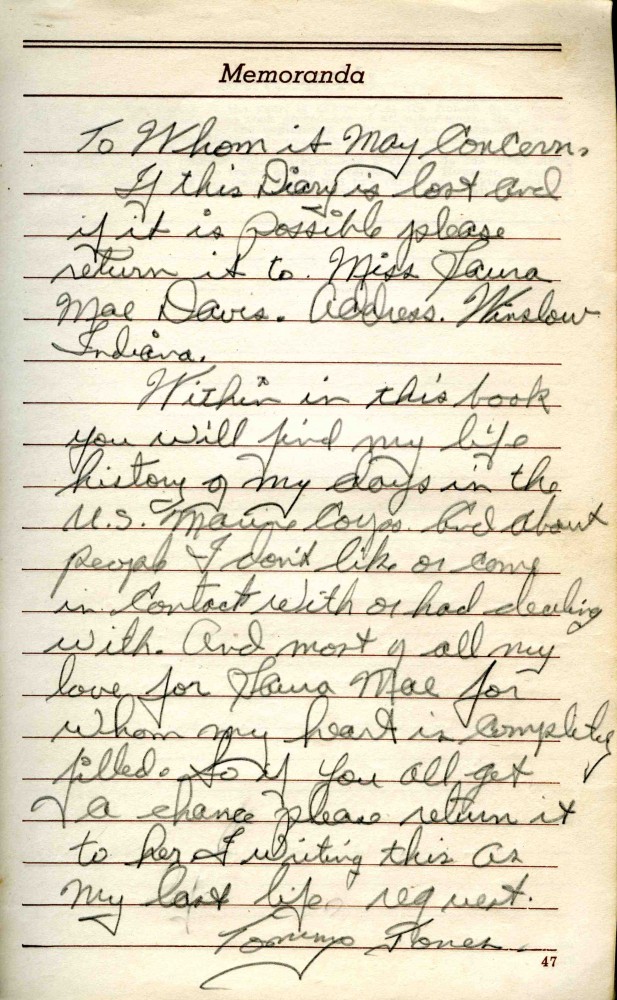 Memoranda
To Whom it May Concern.
If this Diary is lost and
if it is possible please
return it to. Miss Laura
Mae Davis. Address. Winslow
Indiana.
Within in this book
you will find my life
history of my days in the
U.S. Marine Corps. And about
people I don't like or come
in Contact with or had dealing
with. And most of all my
love for Laura Mae for
whom my heart is completely
filled. So if you all get
a chance please return it
to her I writing this as
my last life request.
Tommy Jones.
47